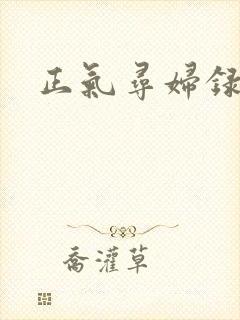 正氣尋婦録
喬灌草